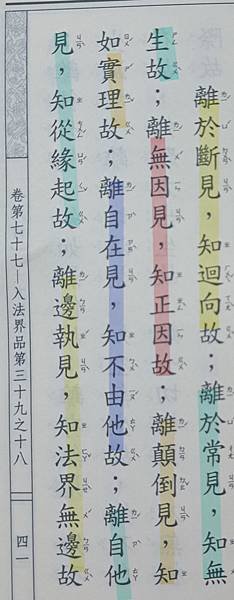 離於斷見，知迴向故；離於常見，知無
生故；離無因見，知正因故；離顛倒見，知
如實理故；離自在見，知不由他故；離自他
見，知從緣起故；離邊執見，知法界無邊故
卷第七十七—入法界品第三十九之十八
四一